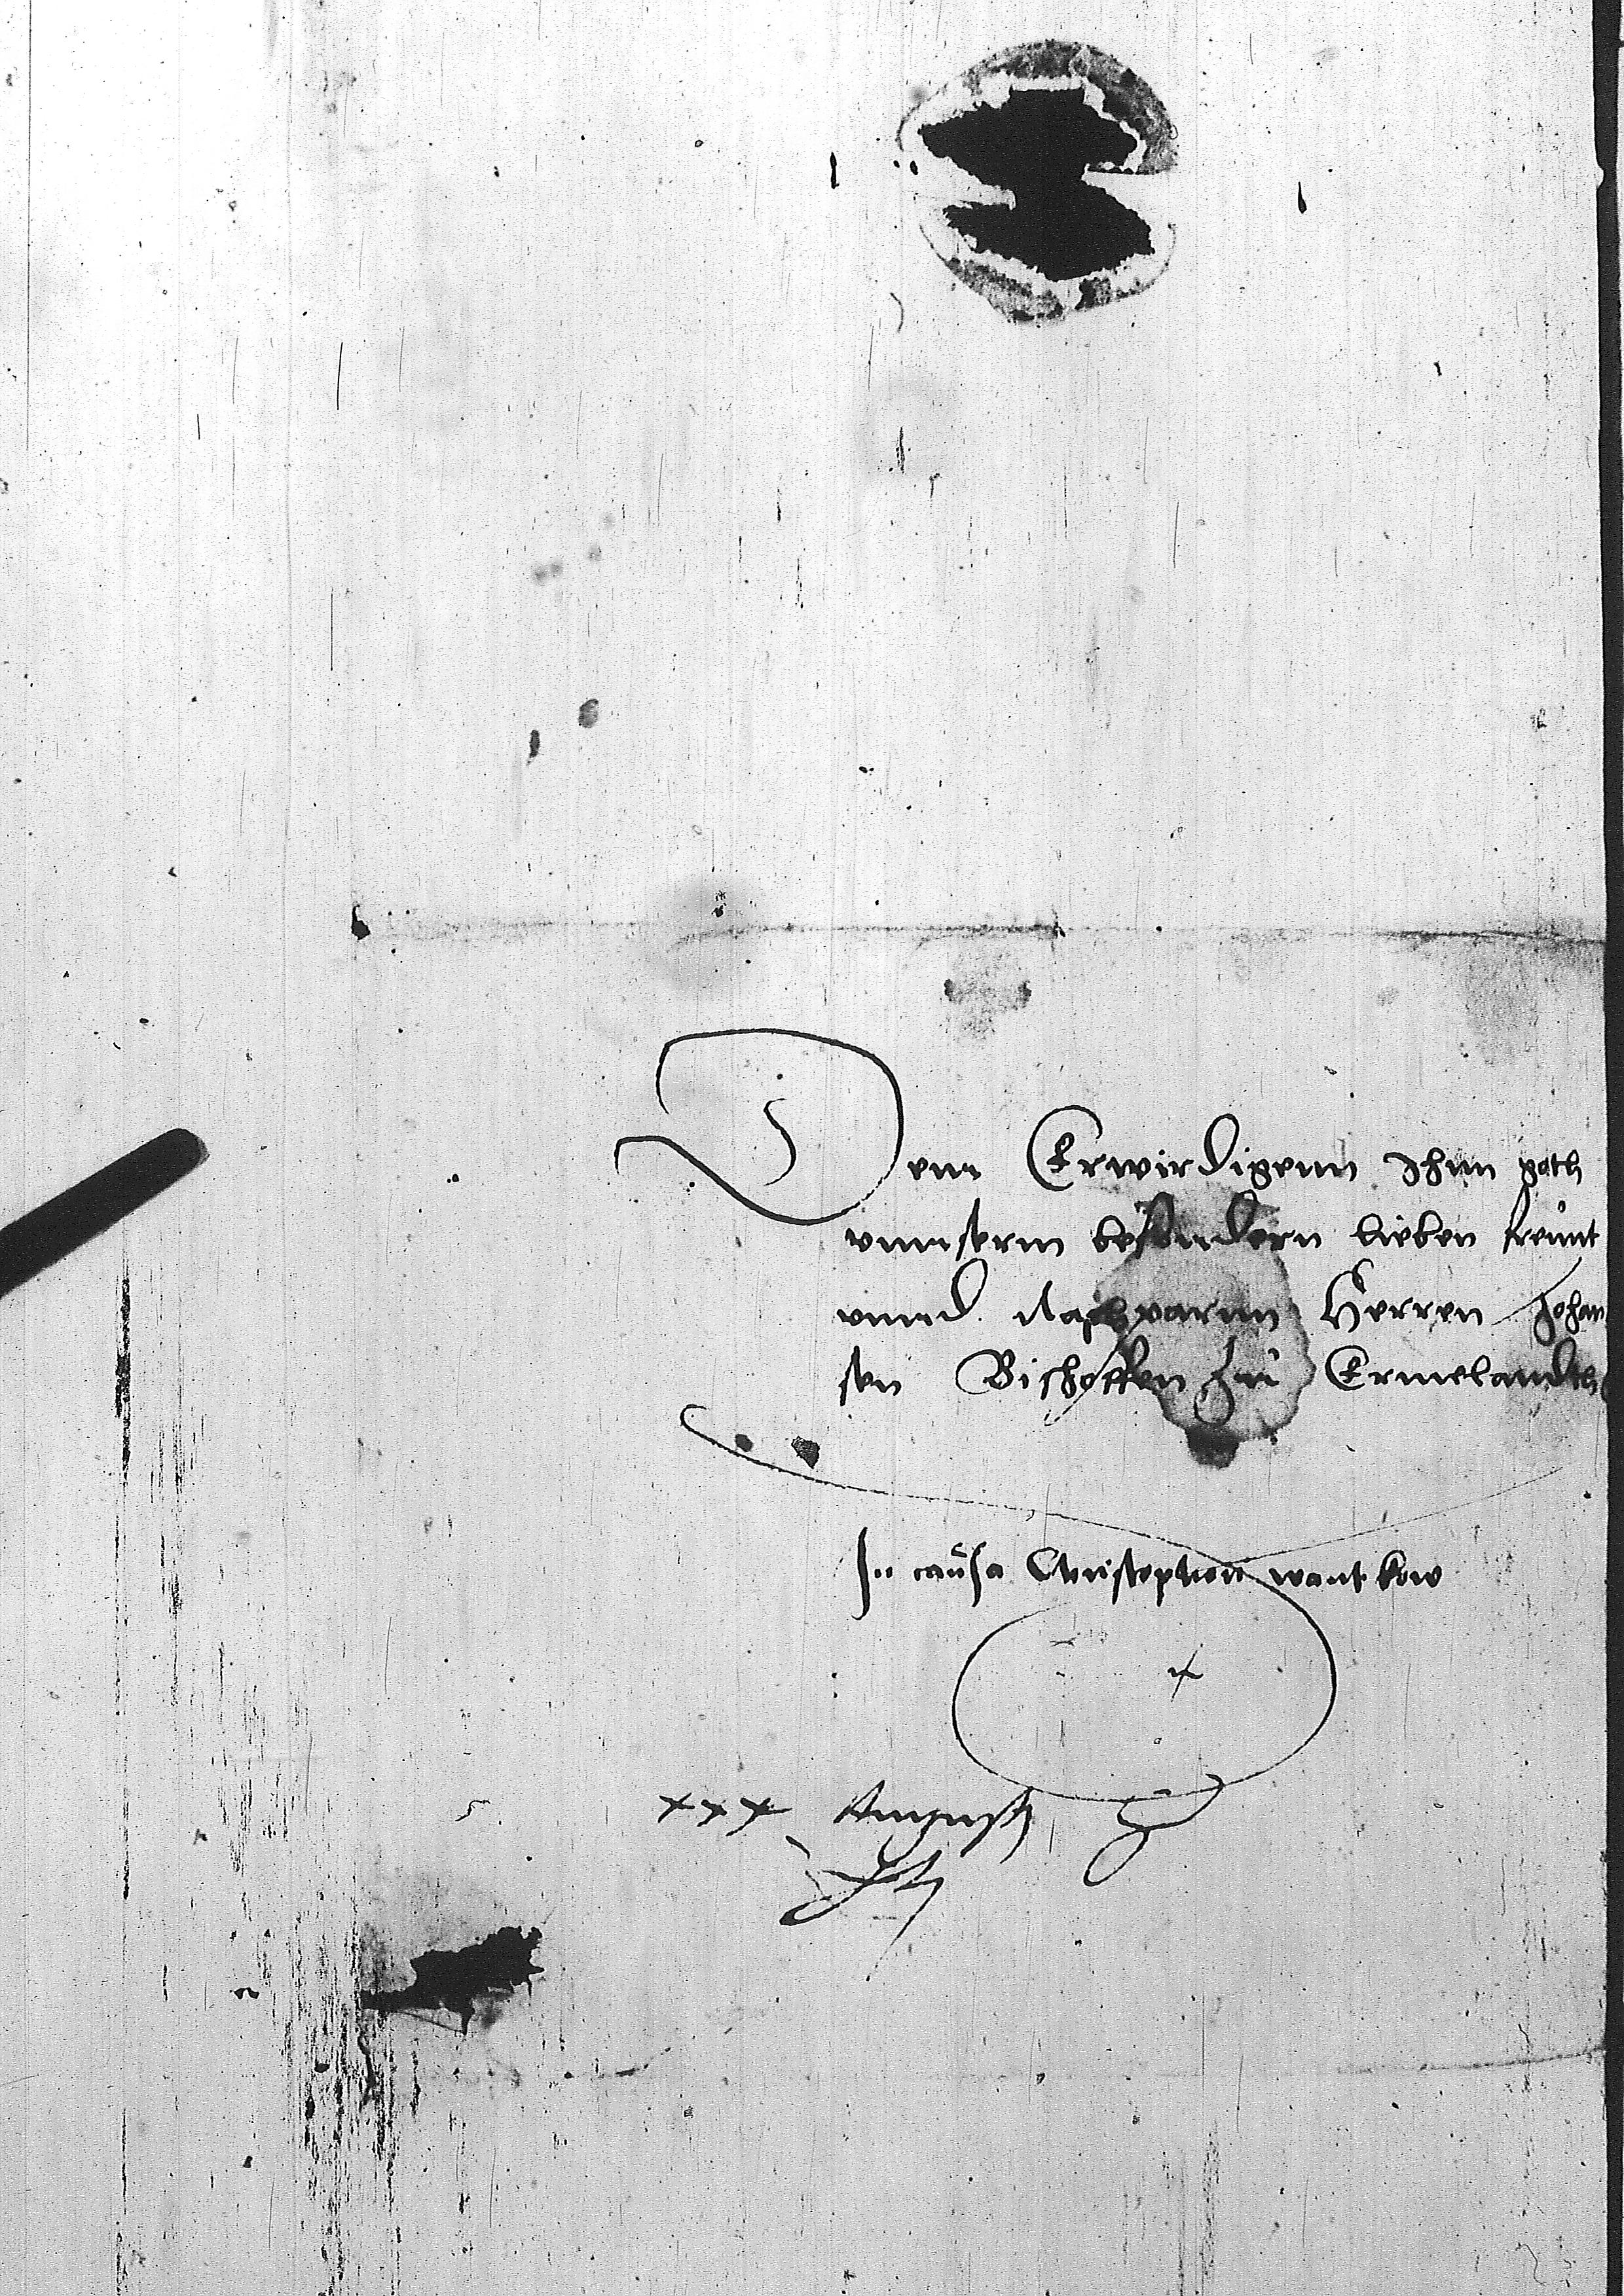 Dem Erwirdigenn Ihnn goth
vnnserm besondern lieben freunt
vnnd Nachparnn Herren Johan
sen Bischoffen zu Ermelandth
In causa Christophori wantkow
xxx Augusti